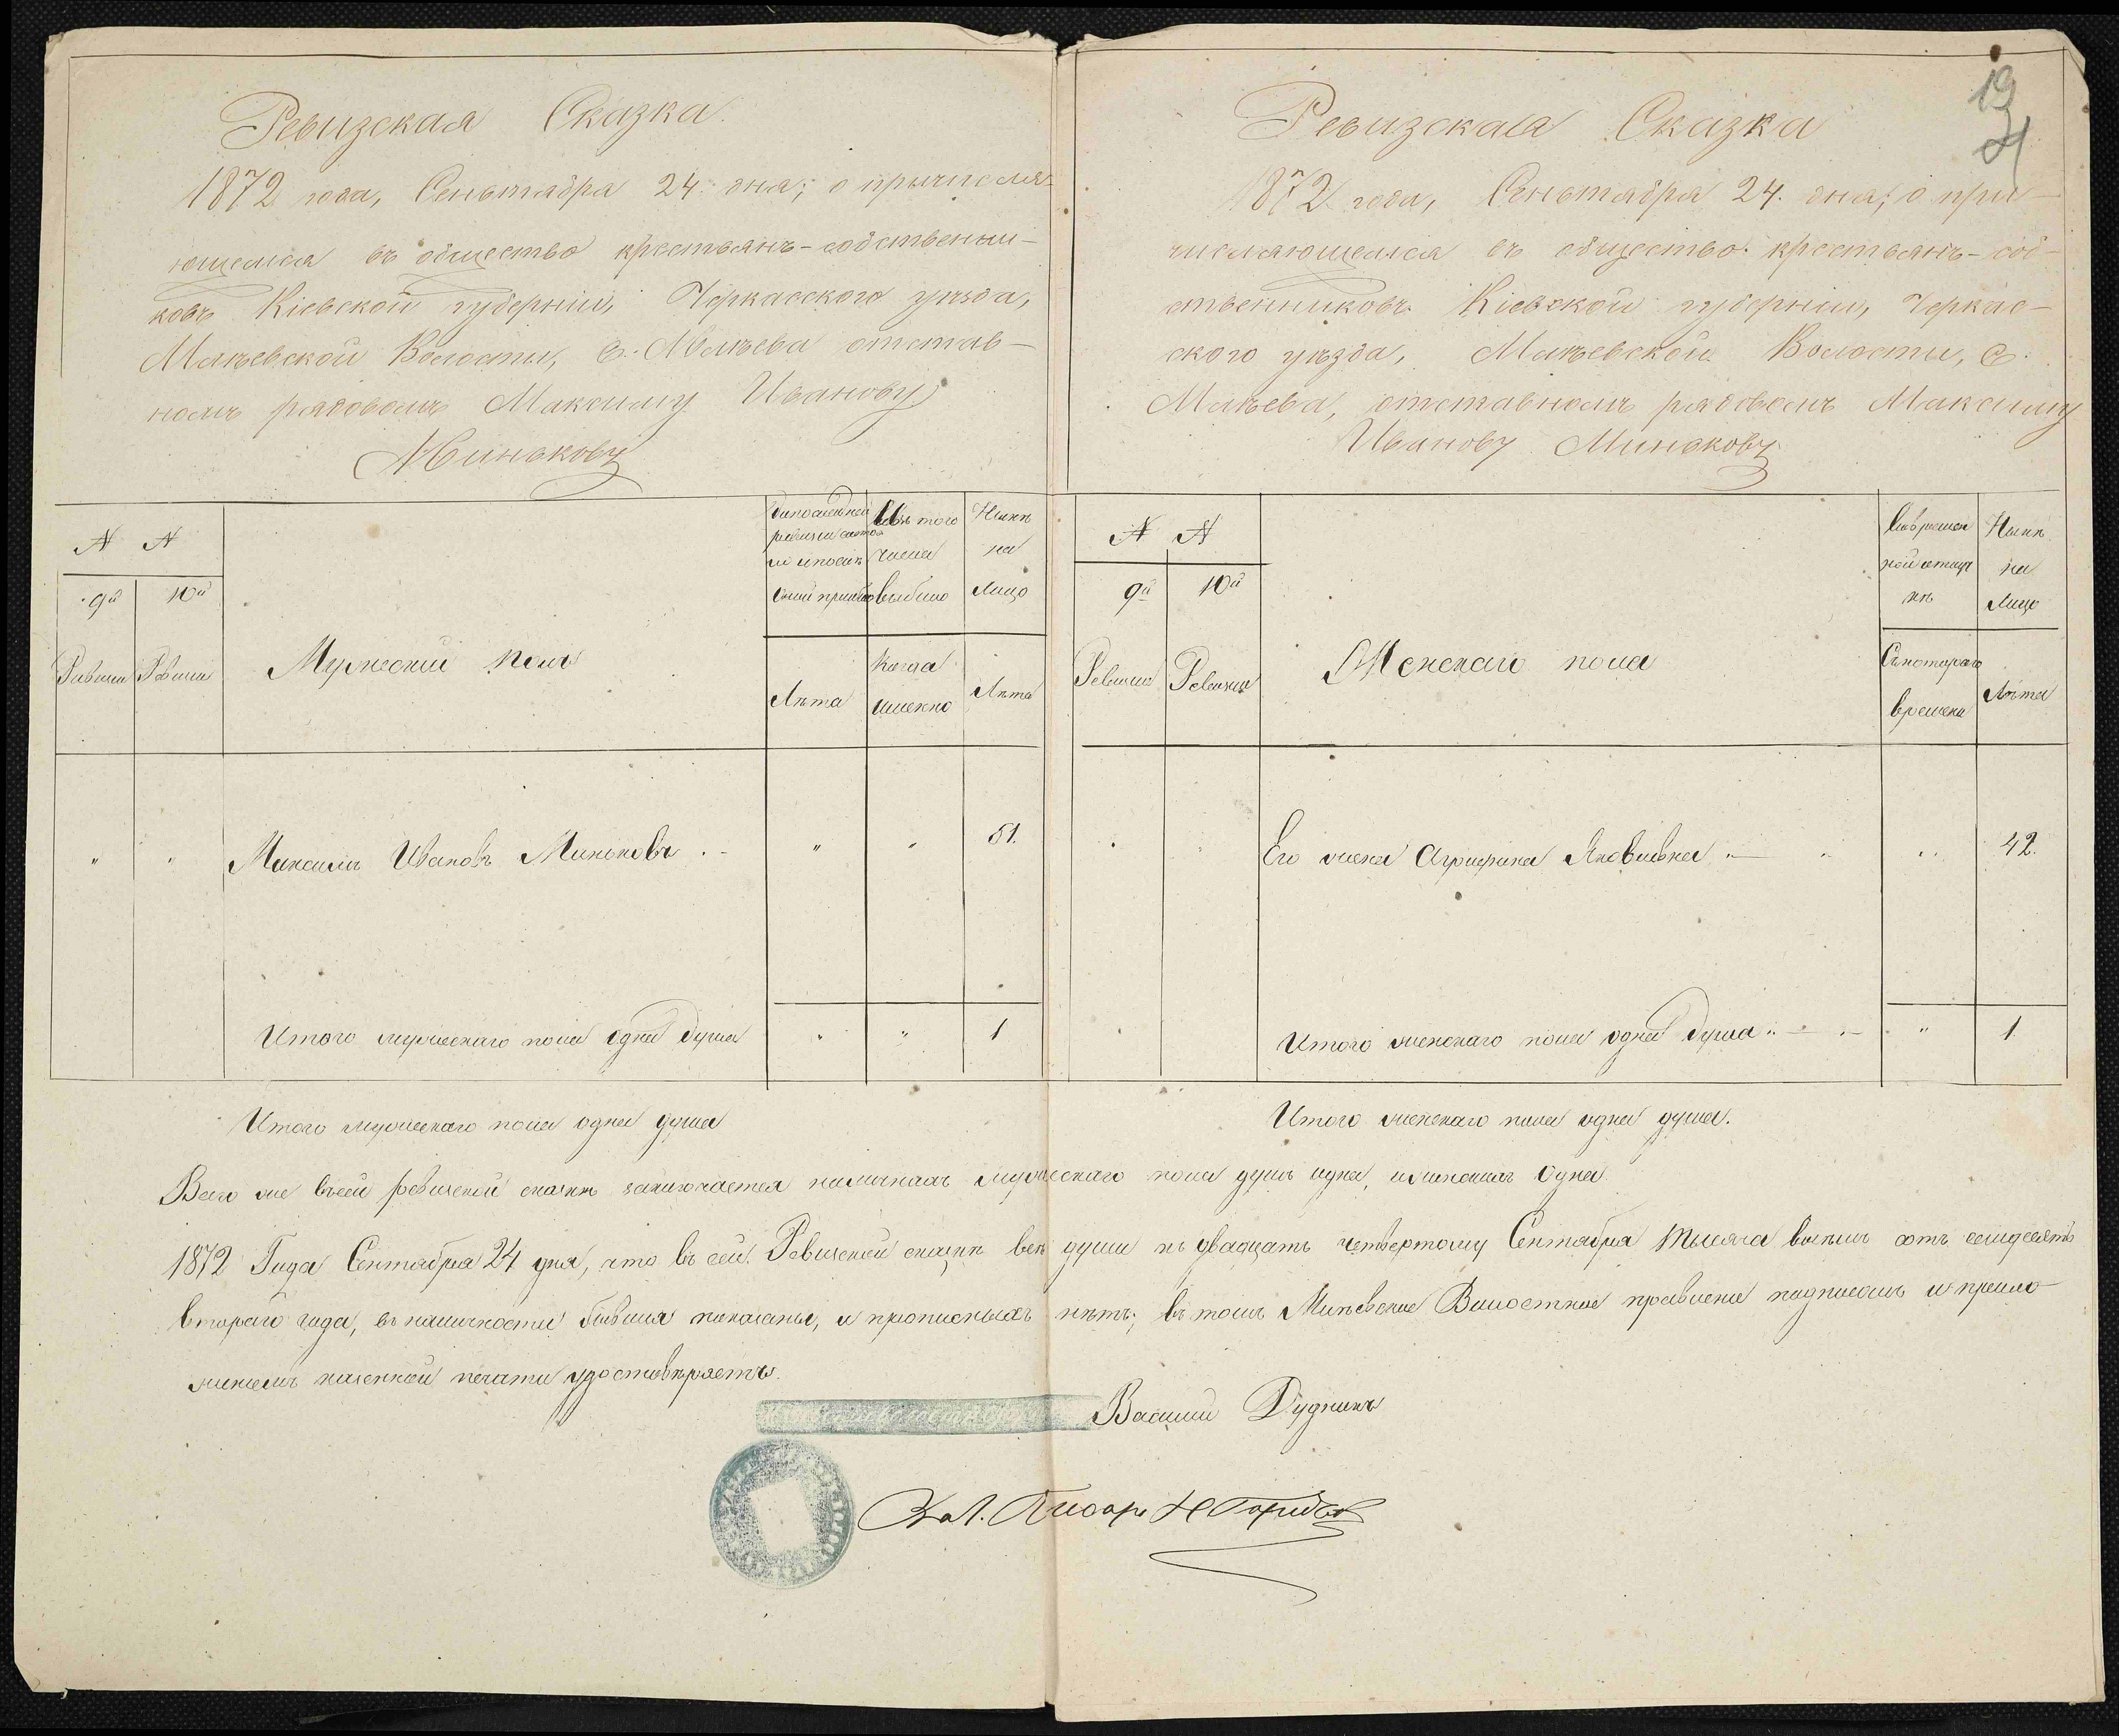 Ревизская Сказка.
1872 года, Сеньтабря 24. дня; о причисля-
ющемся въ общество крестьянъ-собственни-
ковъ Кіевской губерніи, Черкасского уѣзда,
Мліевской Волости, С. Мліева отстав-
номъ рядовомъ Максиму Иванову
Минькову
N N
9й
10й
Ревизіи
Ревизіи
Мужеский полъ
Изъ того
числа
выбыло
Когда
именно
Нынѣ
на
Лицо
Лѣта
Лѣта
" " Максимъ Ивановъ Миньковъ . - " " 51.
Итого мужескаго пола одна душа " " 1
Итого мужескаго пола одна душа
19
Ревизская Сказка
1872 года, Сеньтабря 24. дня; о при-
числяющемся въ общество крестьянъ-соб-
ственниковъ Кіевской губерніи, Черкас-
ского уѣзда, Мліевской Волости, С.
Мліева, отставномъ рядовомъ Максиму
Иванову Минькову
N N
9й
10й
Ревизіи
Ревизіи
Женскаго пола
Во временной отлучкѣ
Съ котораго
времени
Нынѣ
на
Лицо
Лѣта
Его жена Агрипина Яковлевна " 42.
Итого женскаго пола одна душа " 1
Итого женскаго пола одна душа.
Всего же въ сей ревизской сказкѣ заключается наличныхъ мужескаго пола душъ одна, и женскаго одна
1872 Года Сентабря 24 дня, что въ сей Ревизской сказкѣ всѣ души къ двадцать четвертому Сентабря тысяча восемь сотъ семидесятъ
втораго года, въ наличности бывшія показаны, и прописныхъ нѣтъ; въ томъ Мліевское Волостное правленіе подписомъ и прило-
женіемъ казенной печати удостовѣряетъ.
Василий Дудникъ
Вол. Писарь Н